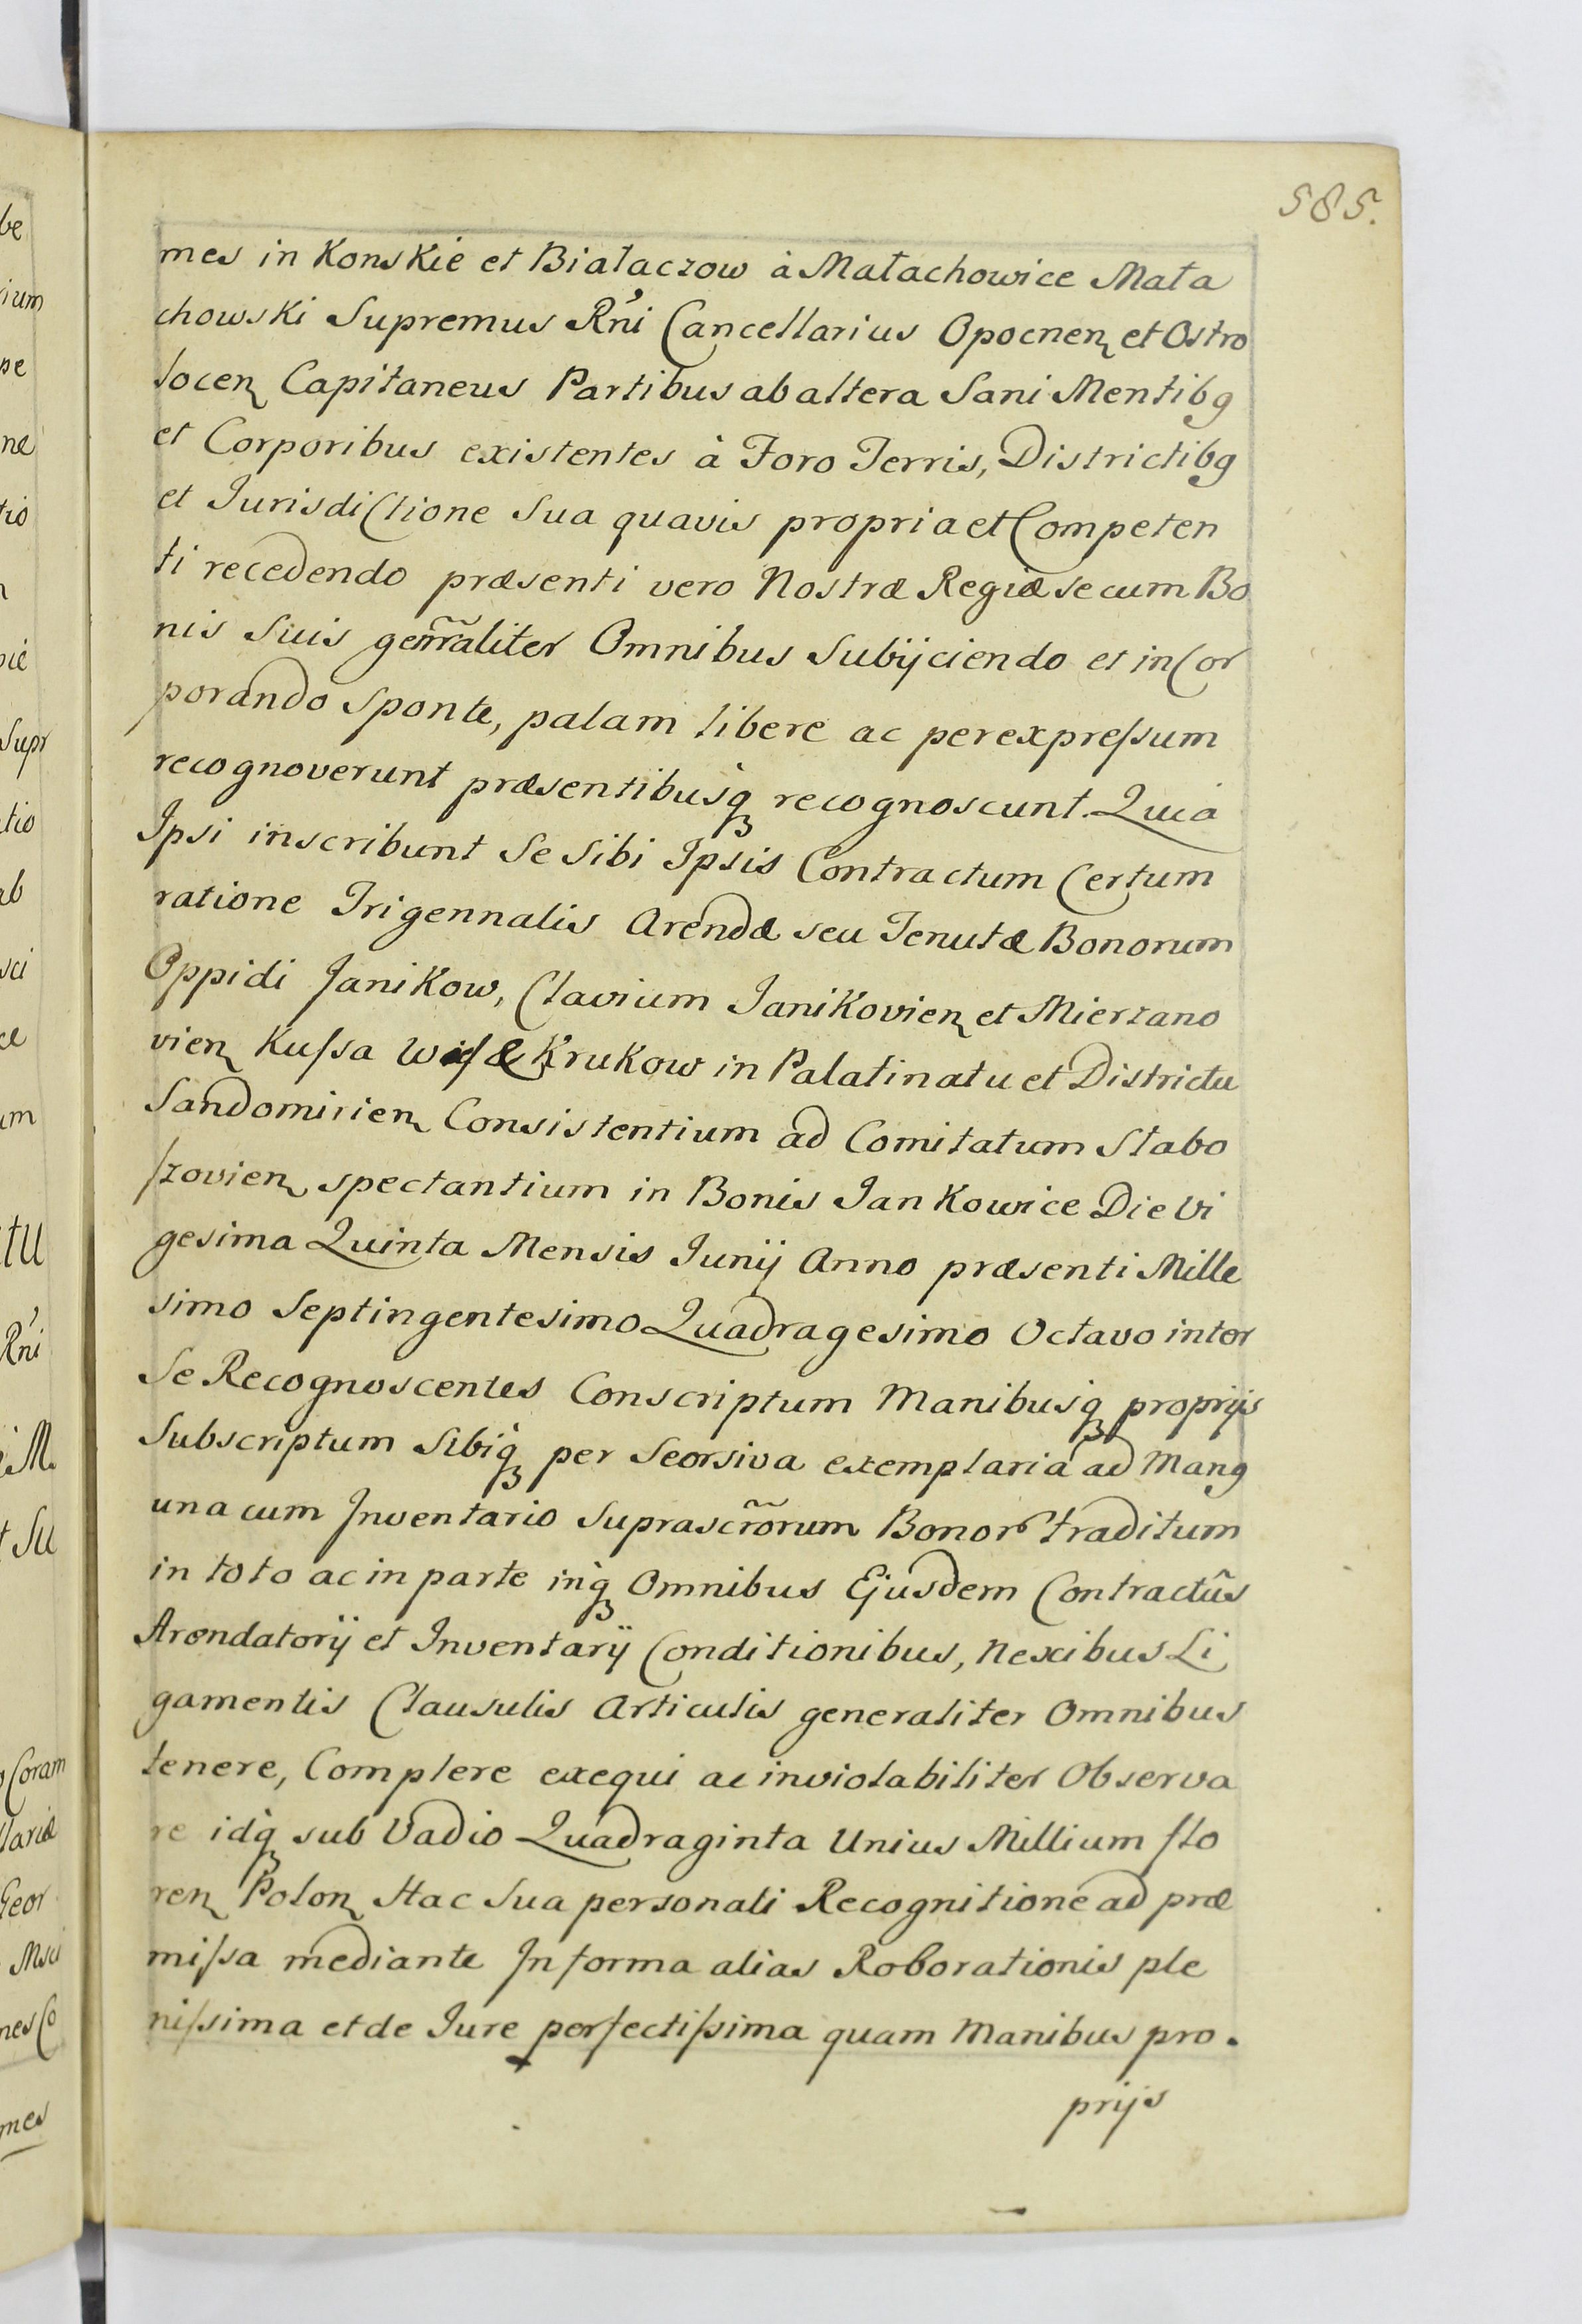 585.
mes in Konskie et Białaczow à Małachowice Mała
chowski Supremus Rn̄i Cancellarius Opocnen et Ostro
locen Capitaneus Partibus ab altera Sani Mentibg
et Corporibus existentes à Foro Terris, Districtibg
et Jurisdictione Sua quavis propria et Competen
ti recedendo præsenti vero Nostræ Regiæ se cum Bo
nis Suis gen̄raliter Omnibus Subijciendo et inCor
porando sponte, palam libere ac per expreſsum
recognoverunt præsentibusq́ recognoscunt. Quia
Ipsi inscribunt Se Sibi Ipsis Contractum Certum
ratione Trigennalis Arendæ seu Tenutæ Bonorum
Oppidi Janikow, Clavium Janikovien et Mierzano
vien Kuſsa Krukow in Palatinatu et Districtu
Sandomirien Consistentium ad Comitatum Stabo
ſzovien spectantium in Bonis Jankowice Die Vi
gesima Quinta Mensis Junij Anno præsenti Mille
simo Septingentesimo Quadragesimo Octavo inter
Se Recognoscentes Conscriptum Manibusq́ proprijs
Subscriptum Sibiq́ per Seorsiva exemplaria ad Mang
una cum Inventario Suprascr̃orum Bonor traditum
in toto ac in parte inq́ Omnibus Ejusdem Contractûs
Arendatorij et Inventarij Conditionibus, Nexibus Li
gamentis Clausulis Articulis generaliter Omnibus
tenere, Complere exequi ac inviolabiliter Observa
re idq́ sub Vadio Quadraginta Unius Millium flo
ren Polon Hac Sua personali Recognitione ad præ
miſsa mediante In forma alias Roborationis ple
niſsima et de Jure perfectiſsima quam Manibus pro.
prijs
be
ium
pe
næ
tio
Supr
tio
ab
sci
ce
um
tu
Rn̄i
M.
t Su
Coram
lariæ
Geor
Msci
nes Co
mes